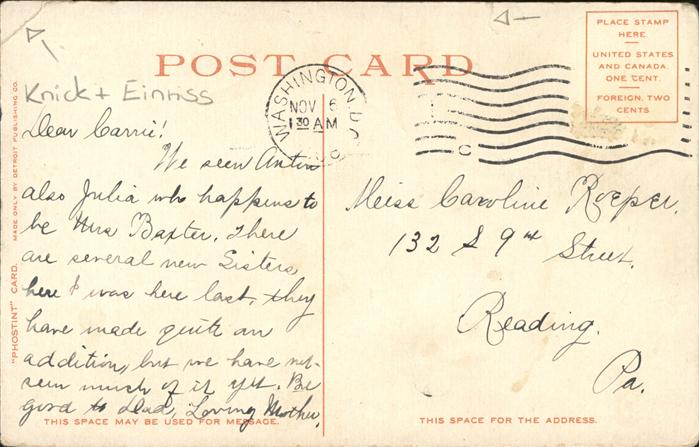 POST CARD
PLACE STAMP
HERE.
UNITED STATES
AND CANADA,
ONE CENT.
FOREIGN, TWO
CENTS
WASHINGTON D.C.
NOV 6
1 30 AM
Knick + Einriss
Dear Carrie!
We seen
also Julia who happens to
be Mrs Baxter. There
are several new Sisters
here I was here last, they
have made quite an
addition, but we have not
seen much of it yet. Be
good to Dad, Loving Mother.
THIS SPACE MAY BE USED FOR MESSAGE.
"PHOSTINT" CARD. MADE ONLY BY DETROIT PUBLISHING CO.
Miss Caroline Roeper.
132 S 9th Street.
Reading.
Pa.
THIS SPACE FOR THE ADDRESS.